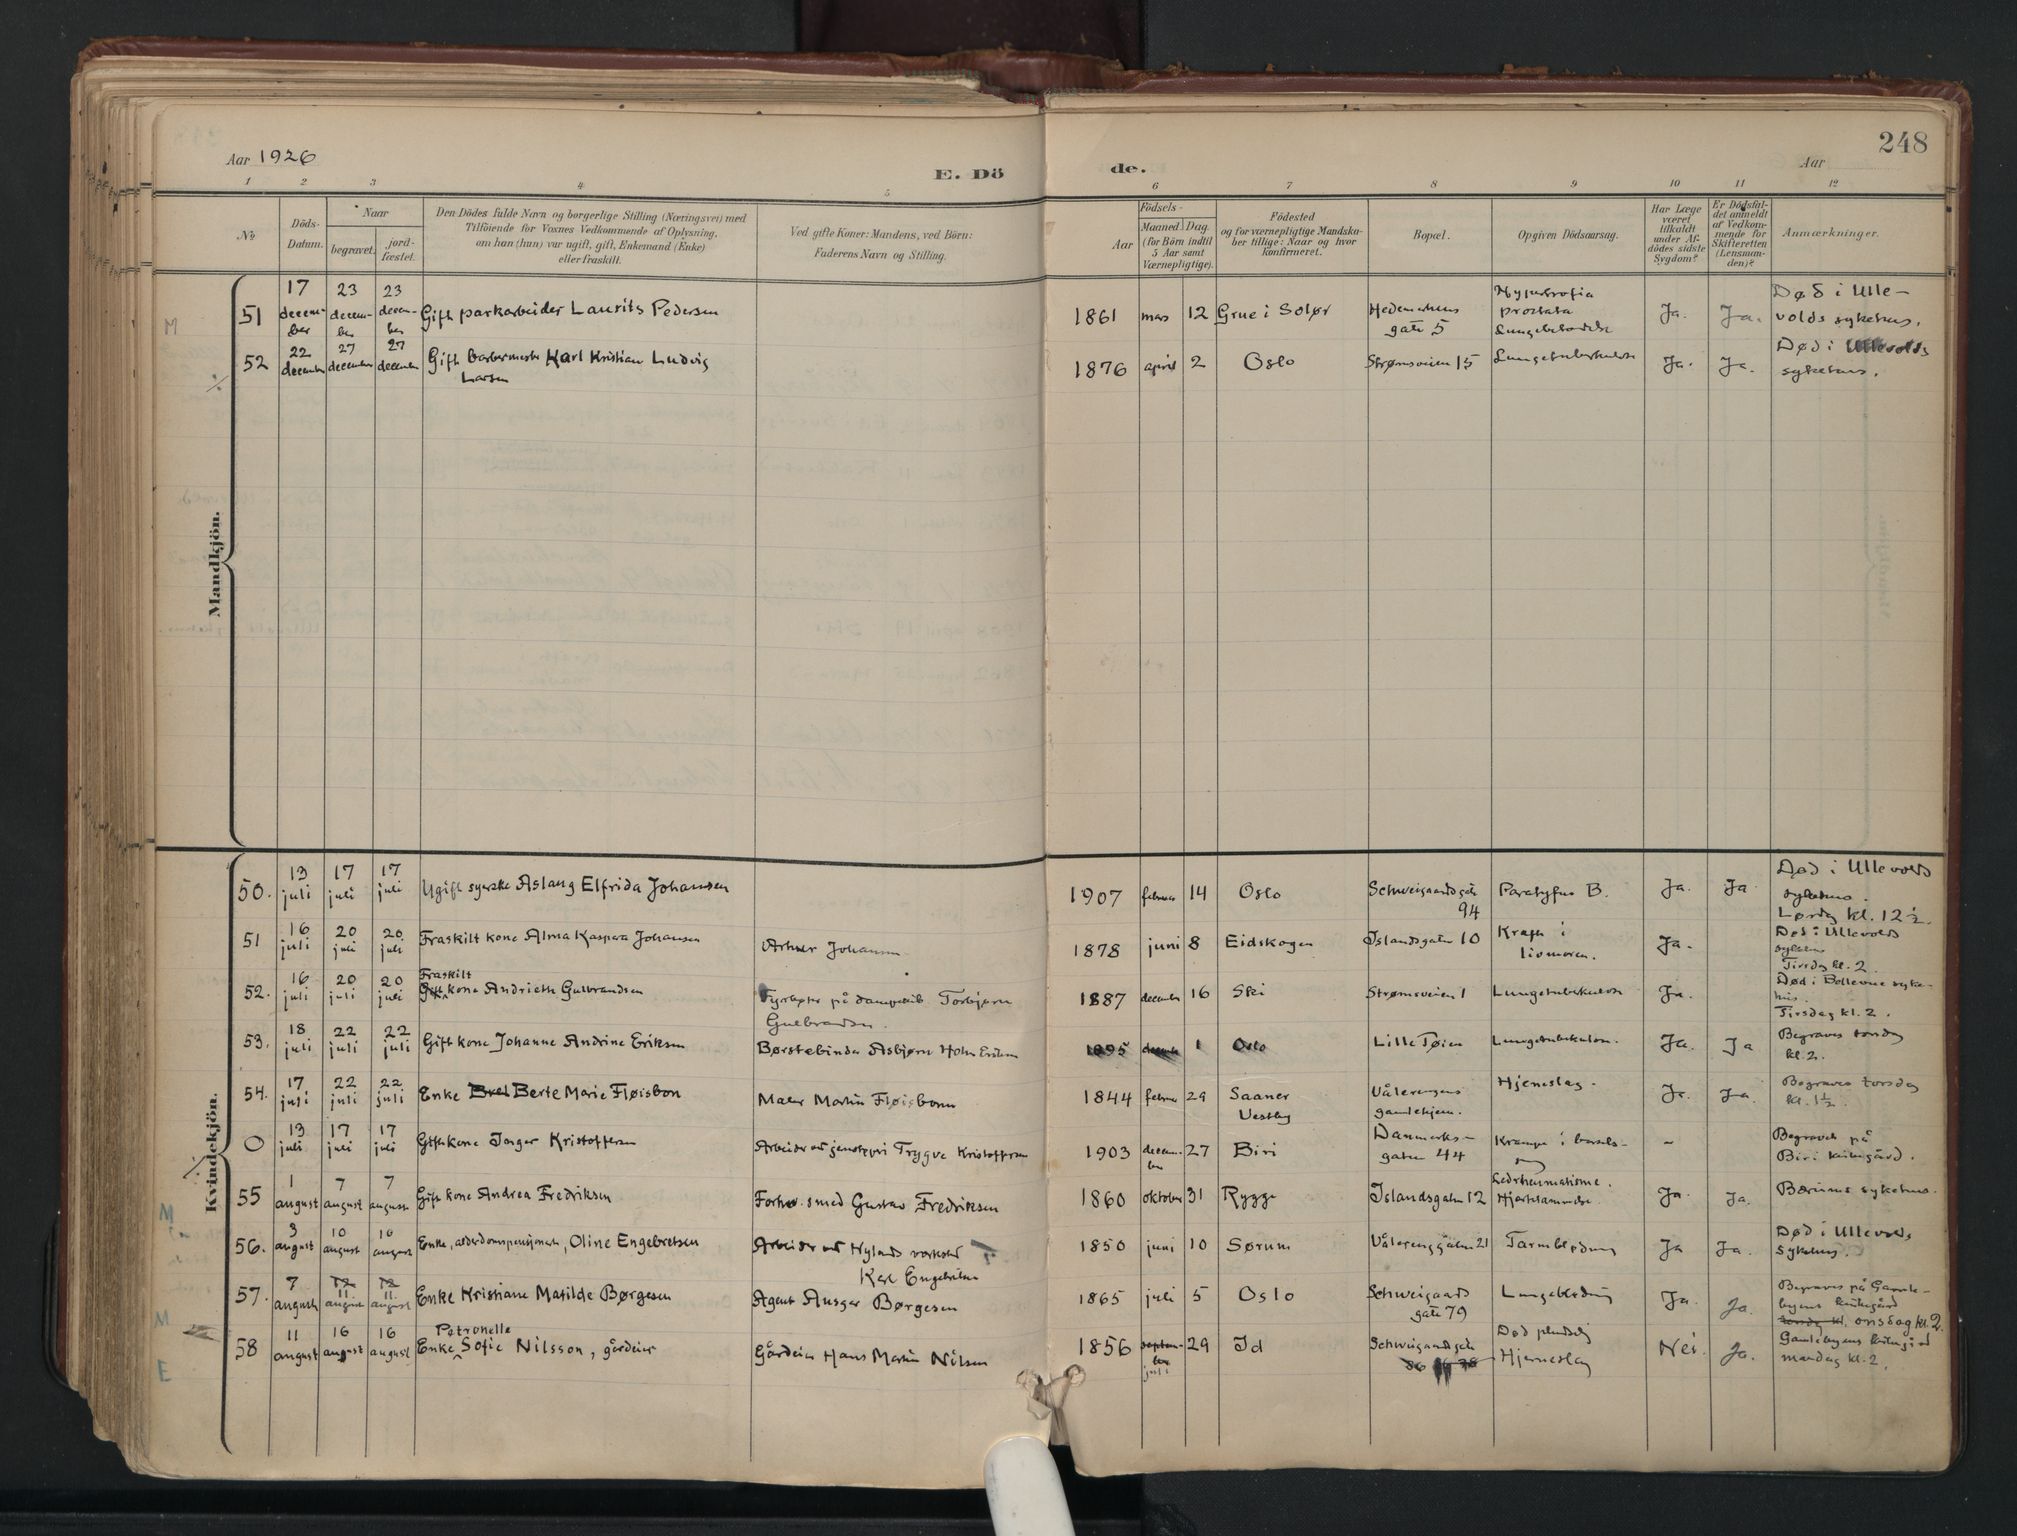 248
Aar 1926
E. Dö
de.
Aar
1 2 3 4 5 6 7 8 9 10 11 12
No
Döds-
Datum.
Naar
begravet.
jord-
fæstet.
Den Dödes fulde Navn og borgerlige Stilling (Næringsvei) med
Tilföiende for Voxnes Vedkommende af Oplysning,
om han (hun) var ugift, gift, Enkemand (Enke)
eller fraskilt.
Ved gifte Koner: Mandens, ved Börn:
Faderens Navn og Stilling.
Födsels-
Aar
Maaned. Dag.
(for Börn indtil
5 Aar samt
Værnepligtige).
Födested
og for værnepligtige Mandska-
ber tillige: Naar og hvor
konfirmeret.
Bopæl.
Opgiven Dödsaarsag.
Har Læge
været
tilkaldt
under Af-
dödes sidste
Sygdom?
Er Dödsfal-
det anmeldt
af Vedkom-
mende for
Skifteretten
(Lensman-
den)?
Anmærkninger.
Mandkjön.
M
51 17 december 23 december 23 december Gift parkarbeider Laurits Pedersen 1861 mars 12 Grue i Solør Hedemarkens gate 5 Hypertrofia prostata Ja. Ja. Død i Ulle-
volds sykehus.
52 22 december 27 december 27 december Gift barbermester Karl Kristian Ludvig
Larsen 1876 april 2 Oslo Strømsveien 15 Lungetuberkulose Ja. Ja. Død i Ullevolds
sykehus.
Kvindekjön.
50. 13 juli 17 juli 17 juli Ugift syerske Aslaug Elfrida Johansen 1907 februar 14 Oslo Schweigaards gate
94 Paratyfus B. Ja. Ja Død i Ullevolds
sykehus.
Lørdag kl. 12 1/2.
51 16 juli 20 juli 20 juli Fraskilt kone Alma Kaspara Johansen Arthur Johansen 1878 juni 8 Eidskogen Islandsgaten 10 Kræft i
livmoren. Ja. Død i Ullevolds
sykehus
Tirsdag kl. 2.
52. 16 juli 20 juli 20 juli Fraskilt
Gift kone Andriette Gulbrandsen Fyrbøter på dampskib Torbjørn
Gulbrandsen. 1887 december 16 Ski Strømsveien 1 Lungetuberkulose Ja. Død i Bellevue syke-
hus.
Tirsdag kl. 2.
53. 18 juli 22 juli 22 juli Gift kone Johanne Andrine Eriksen Børstebinder Asbjørn Holm Eriksen 1895 december 1 Oslo Lille Tøien Lungetuberkulose. Ja. Ja Begraves torsdag
kl. 2.
54. 17 juli 22 juli 22 juli Enke Berte Marie Fløisbon Maler Martin Fløisbonn 1844 februar 29 Saaner
Vestby Vålerengens
gamlehjem. Hjerneslag. Ja. Ja. Begraves torsdag
kl. 1 1/2.
O 13 juli 17 juli 17 juli Gift kone Inger Kristoffersen Arbeider ved jernstøperi Trygve Kristoffersen 1903 decem-
ber 27 Biri Danmarks-
gaten 44 Krampe i barsels-
seng – Begravet på
Biri kirkegård.
M
55 1 august 7 august 7 august Gift kone Andrea Fredriksen Forhv. smed Gustav Fredriksen 1860 oktober 31 Rygge Islandsgaten 12 Ledrheumatisme.
Hjertelammelse. Ja. Ja. Bærums sykehus.
56. 3 august 10 august 10 august Enke, alderdomspensjonert, Oline Engebretsen Arbeider ved Nylands verksted
Karl Engebretsen 1850 juni 10 Sørum Vålerenggaten 21 Tarmblødning Ja Ja. Død i Ullevolds
sykehus.
57. 7 august 12 11 august 12 11 august Enke Kristiane Matilde Børgesen Agent Ansgar Børgesen 1865 juli 5 Oslo Schweigaards
gate 79 Lungeblødning Ja. Ja. Begraves på Gamle-
byens kirkegård
torsdag kl. onsdag kl. 2.
M
58 11 august 16 august 16 august Petronelle
Enke Sofie Nilsson, gårdeier Gårdeier Hans Martin Nilsen 1856 septem-
ber
juli 29 Id Schweigaards gate
86 Død pludselig
Hjerneslag Nei. Ja. Gamlebyens kirkegård
mandag kl. 2.
E